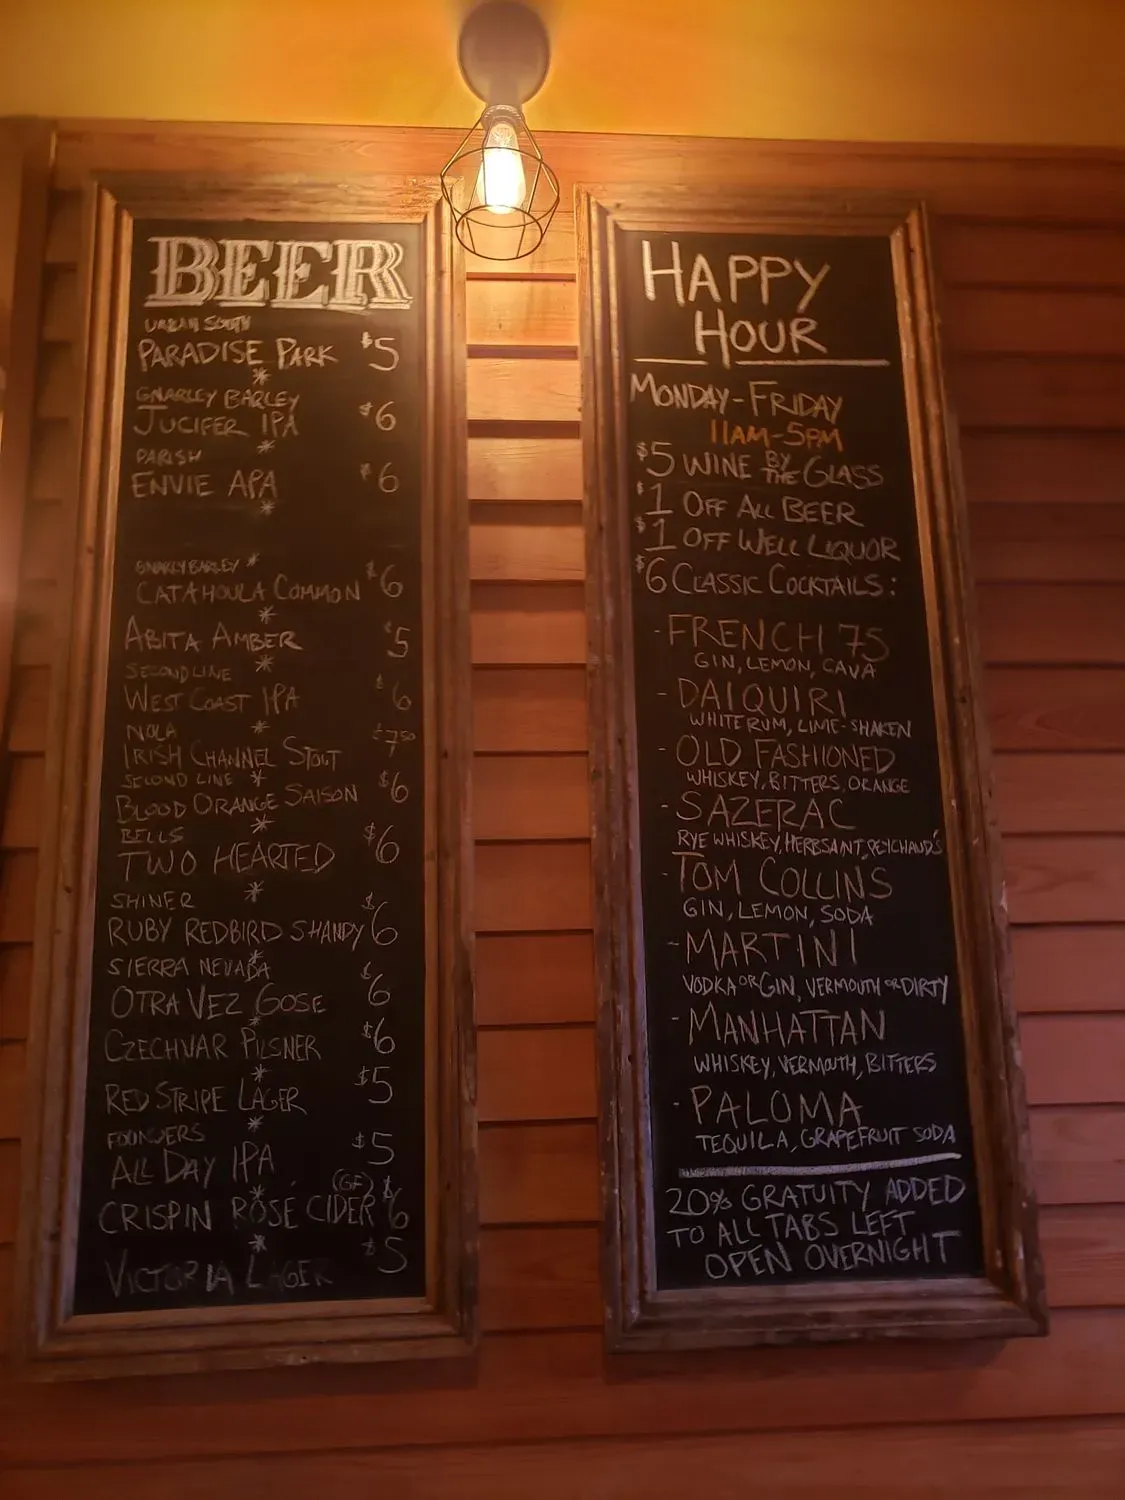 BEER
URBAN SOUTH
PARADISE PARK $5
*
GNARLEY BARLEY
JUCIFER IPA $6
*
PARISH
ENVIE APA $6
*
GNARLY BARLEY *
CATAHOULA COMMON $6
*
ABITA AMBER $5
*
SECOND LINE
WEST COAST IPA $6
*
NOLA
IRISH CHANNEL STOUT $7.50
SECOND LINE *
BLOOD ORANGE SAISON $6
*
BELLS
TWO HEARTED $6
*
SHINER
RUBY REDBIRD SHANDY $6
*
SIERRA NEVADA
OTRA VEZ GOSE $6
*
CZECHVAR PILSNER $6
*
RED STRIPE LAGER $5
*
FOUNDERS
ALL DAY IPA $5
*
(GF)
CRISPIN ROSE CIDER $6
*
VICTORIA LAGER $5
HAPPY
HOUR
MONDAY-FRIDAY
11AM-5PM
$5 WINE BY THE GLASS
$1 OFF ALL BEER
$1 OFF WELL LIQUOR
$6 CLASSIC COCKTAILS:
-FRENCH 75
GIN, LEMON, CAVA
- DAIQUIRI
WHITE RUM, LIME-SHAKEN
- OLD FASHIONED
WHISKEY, BITTERS, ORANGE
- SAZERAC
RYE WHISKEY, HERBSAINT, PEYCHAUD'S
- TOM COLLINS
GIN, LEMON, SODA
-MARTINI
VODKA OR GIN, VERMOUTH OR DIRTY
-MANHATTAN
WHISKEY, VERMOUTH, BITTERS
- PALOMA
TEQUILA, GRAPEFRUIT SODA
20% GRATUITY ADDED
TO ALL TABS LEFT
OPEN OVERNIGHT